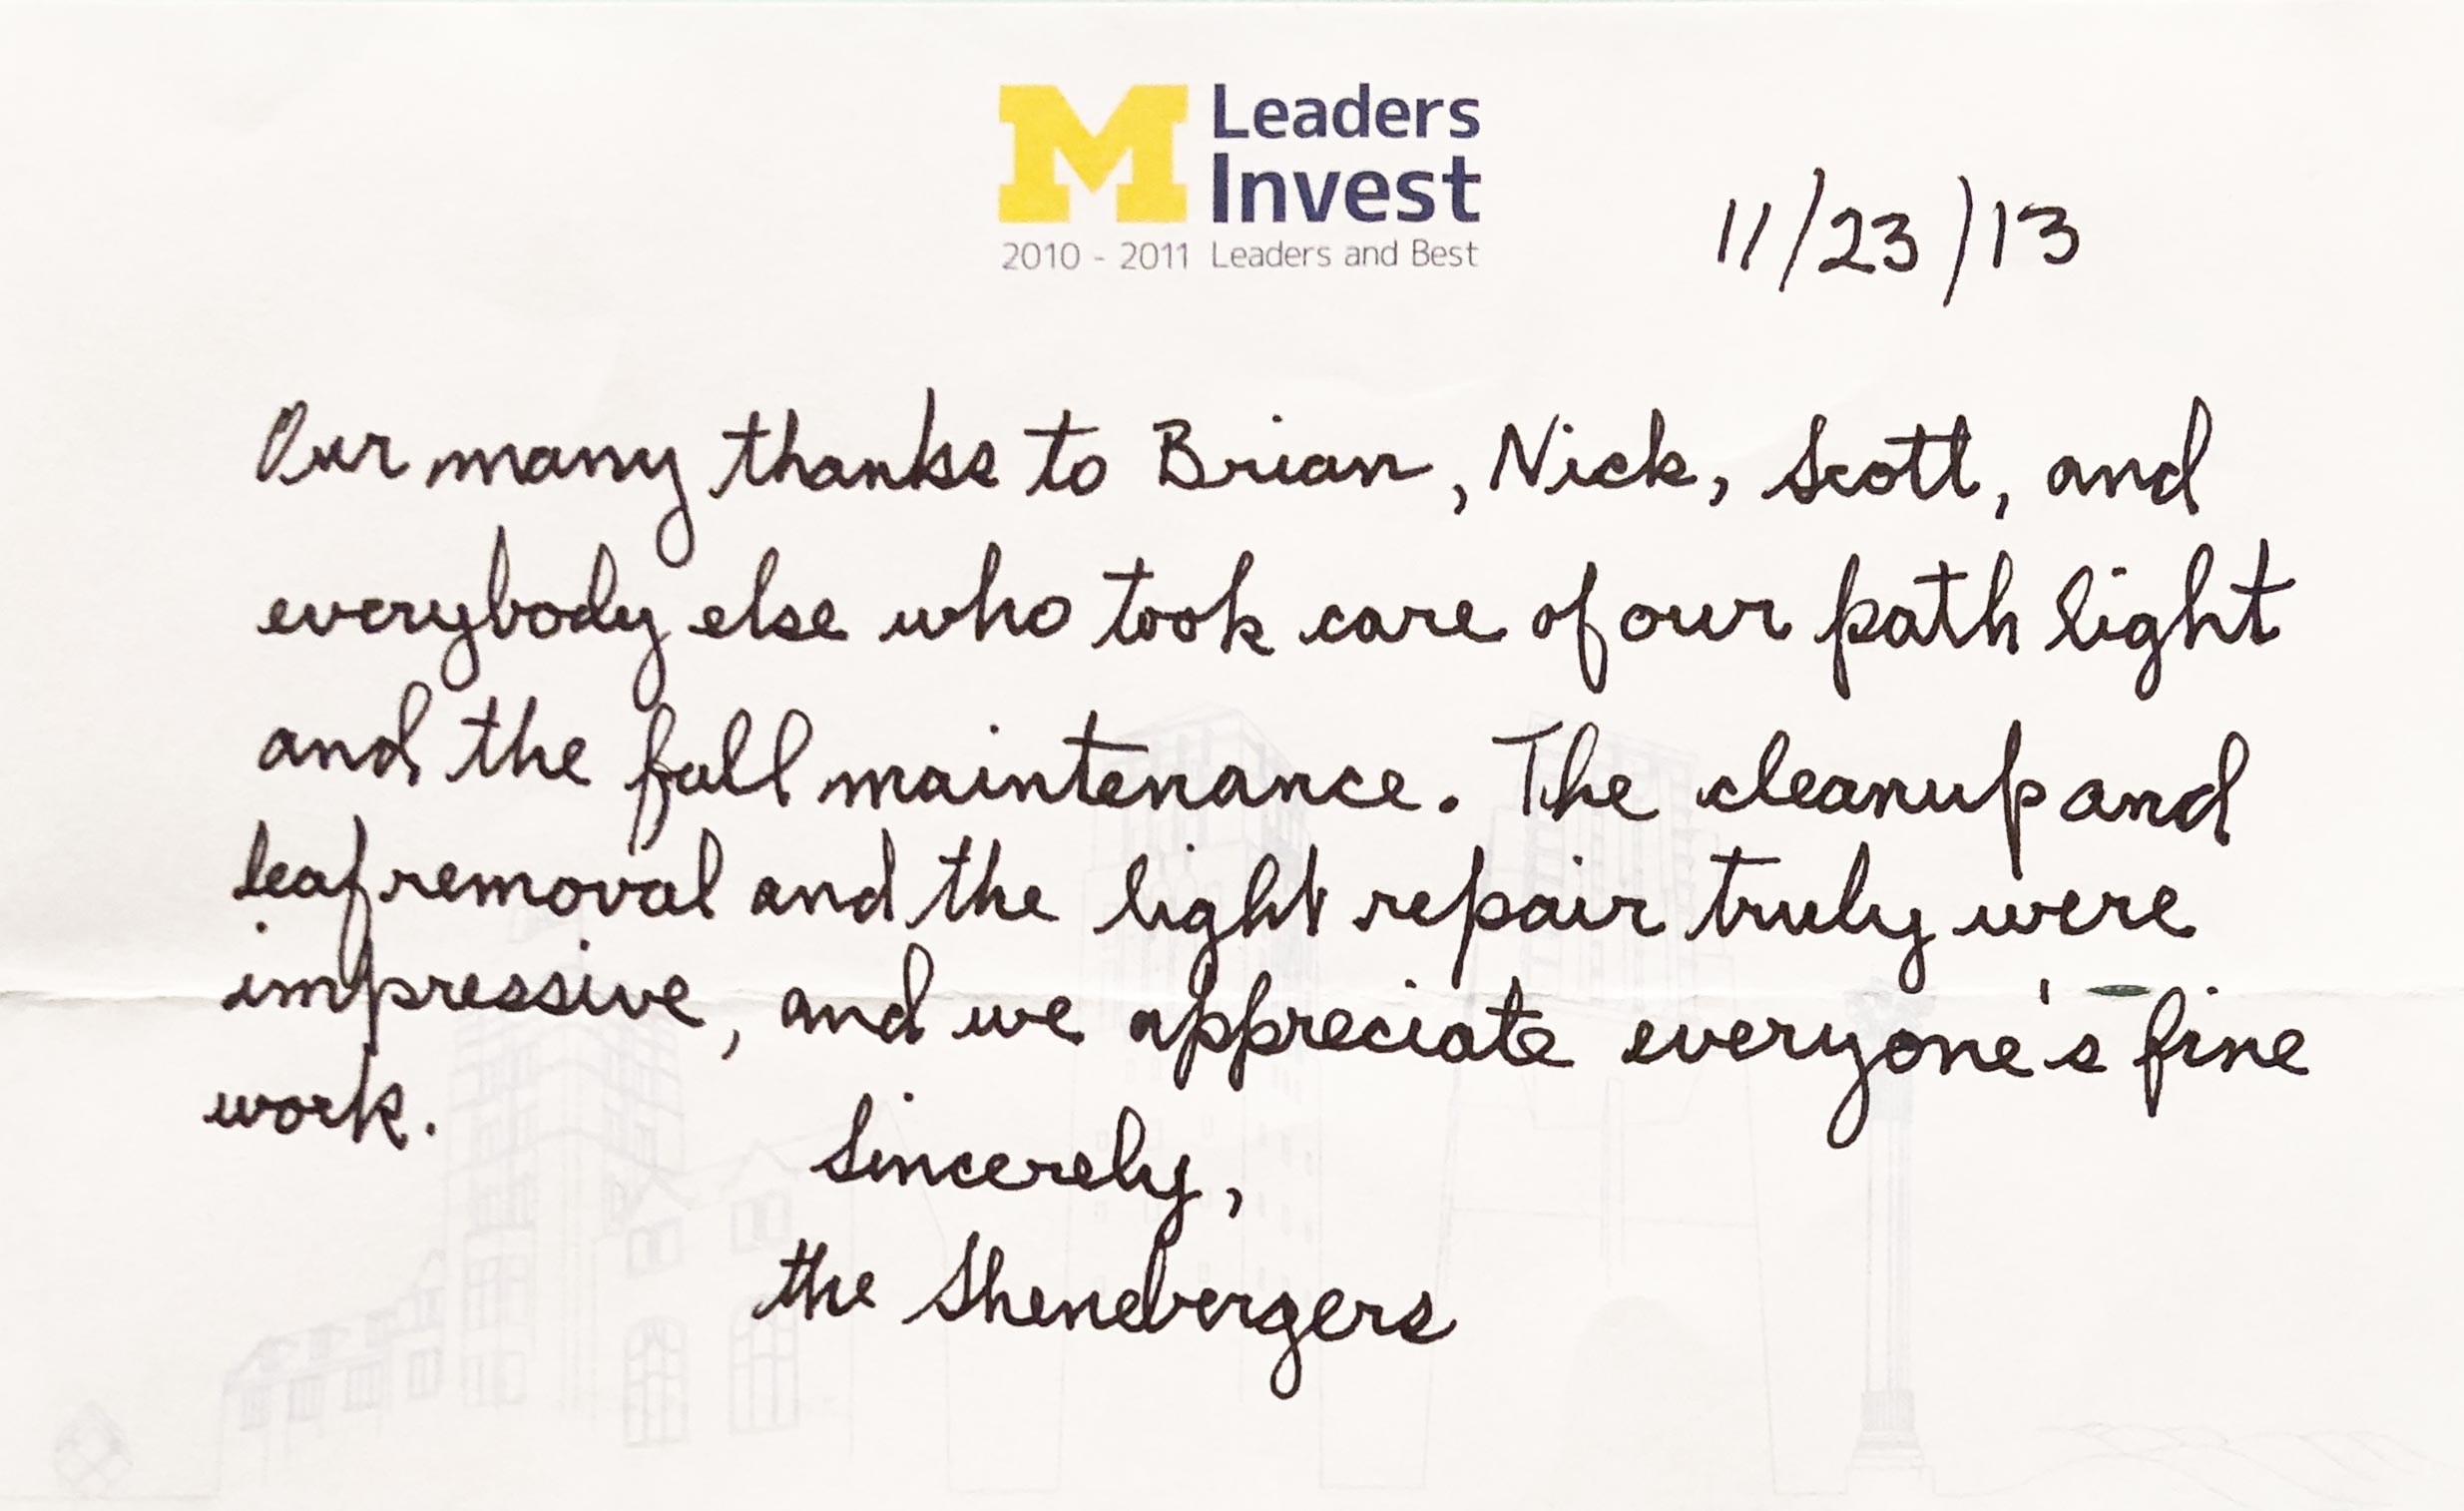 M Leaders
Invest
2010 - 2011 Leaders and Best
11/23/13
Our many thanks to Brian, Nick, Scott, and
everybody else who took care of our path light
and the fall maintenance. The cleanup and
leaf removal and the light repair truly were
impressive, and we appreciate everyone's fine
work.
Sincerely,
the Shenebergers